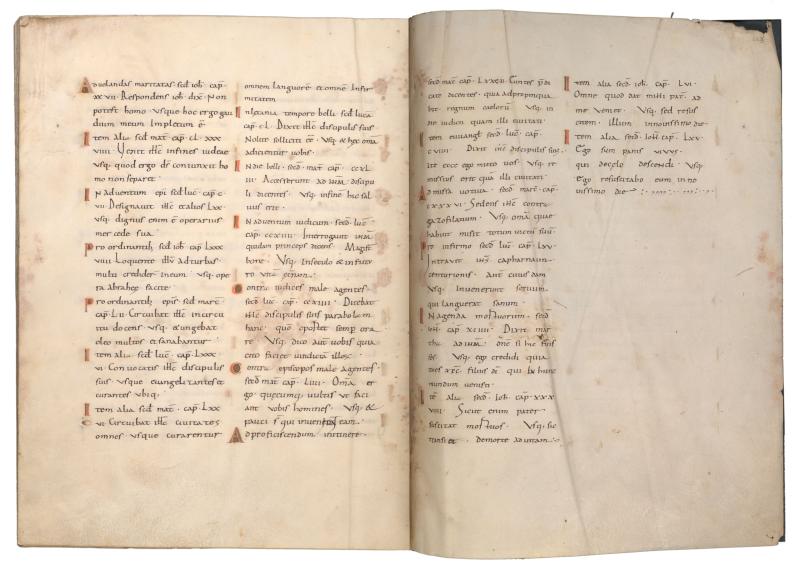 Aduelandas maritatas sed ioh cap
xxvii. Respondens ioh dix. Non
potest homo. usque hoc ergo gau
dium meum Impletum ē
Item alia sed mat cap. cl. xxx
viiii. Venit ihs infines iudeae
usq. quod ergo ds coniunxit ho
mo non separet.
In aduentum epi sed luc cap c
vii. Designauit ihs et alios lxx
usq. dignus enim ē operarius
mercede sua.
Pro ordinantib; sed ioh cap lxxx
viiii. Loquente ihu ad turbas
multi crediderīt ineum. usq. ope
ra abrahae facite.
Pro ordinantib; epis sed marc
cap. l ii. Circuibat ihs in circu
itu docens. usq. & ungebat
oleo multos et sanabantur
Item alia sed luc. cap. lxxx
vi. Conuocatis ihs discipulis
suis. usque euangelizantes et
curantes ubiq;
Item alia sed mat. cap. lxx
vi Circuibat ihs ciuitates
omnes. usque curarentur
omnem languorē et omnē Infir
mitatem
In letania tempore belli. sed luca
cap. cl. Dixit ihs discipulis suis
Nolite solliciti eē. usq. & hęc oma
adicientur uobis.
In die belli. sed mat cap. ccxl
iii. Accesserunt ad ihm discipu
li dicentes. usq. infinē hic sal
uus erit.
In aduentum iudicum. sed luc
cap. ccxviii. Interrogauit ihm
quidam princeps dicens. Magist
bone. usq. Inseculo & infutu
ro uitā aeternā.
Contra iudices male agentes.
sed luc cap. ccxiiii. Dicebat
ihs discipulis suis parabolam
hanc. quō oportet semper ora
re. usq. dico aut uobis quia
cito faciet uindictā illis.
Contra episcopos male agentes.
sed mat cap. l iiii. Oma er
go quecumq; uultis ut faci
ant uobis homines. usq. &
pauci s qui inueniunt eam.
Ad proficiscendum initinere.
sed mat cap. lxxvii. Euntes pdi
cate dicentes. quia adpropinqua
bit regnum caelorū. usq. in
die iudicii quam illi ciuitati
Item euuangl sed luc cap.
c viii. Dixit ihs discipulis suis
ite ecce ego mitto uos. usq. re
missius erit quā illi ciuitati
Admissa uotiua. sed marc cap.
cxxxvi. Sedens ihs contra
gazofilatium. usq. omā quae
habuit misit totum uictū suū
Pro infirmo sed luc cap. lxv.
Intrauit ihs capharnaum
centurionis. Aut cuiusdam
usq. Inuenerunt seruum
qui languerat sanum.
In agenda mortuorum. sed
ioh cap xciiii. Dixit mar
tha ad ihm. dne si hic fuis
ses. usq. ego credidi quia
tu es xpc filius di qui in hunc
mundum uenisti.
Itē alia. sed ioh. cap. xxx
viiii. Sicut enim pater
suscitat mortuos. usq. sic
transiet. demorte ad uitam.
Item alia sed ioh cap. lvi.
Omne quod dat mihi pat. ad
me ueniet. usq. sed resus
citem. illum innouissimo die
Item alia. sed ioh cap. lxv.
Ego sum panis uiuus.
qui decelo descendi. usq.
ego resuscitabo eum inno
uissimo die